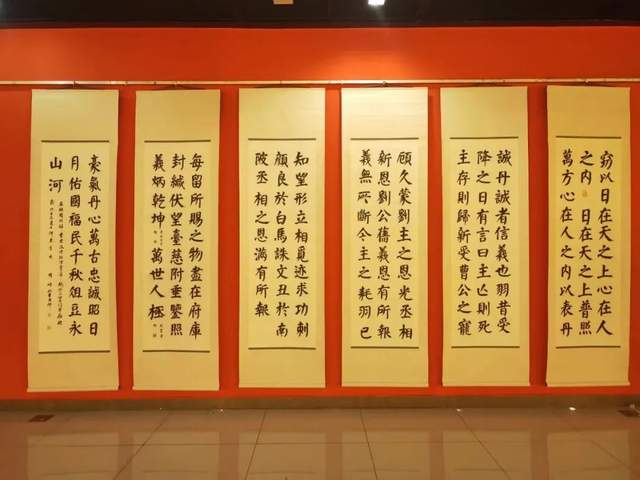 竊以日在天之上心在人
之内日在天之上普照
萬方心在人之内以表丹
誠丹誠者信義也羽昔受
降之日有言曰主亡則死
主存則歸新受曹公之寵
顧久蒙劉主之恩光丞相
新恩劉公舊義恩有所報
義無所斷今主之耗羽已
知望形立相覓迹求功刺
顏良於白馬誅文丑於南
陂丞相之恩滿有所報
每留所賜之物盡在府庫
封緘伏望臺慈附垂鑒照
義炳乾坤萬世人極
豪氣丹心萬古忠誠昭日
月佑國福民千秋俎豆永
山河